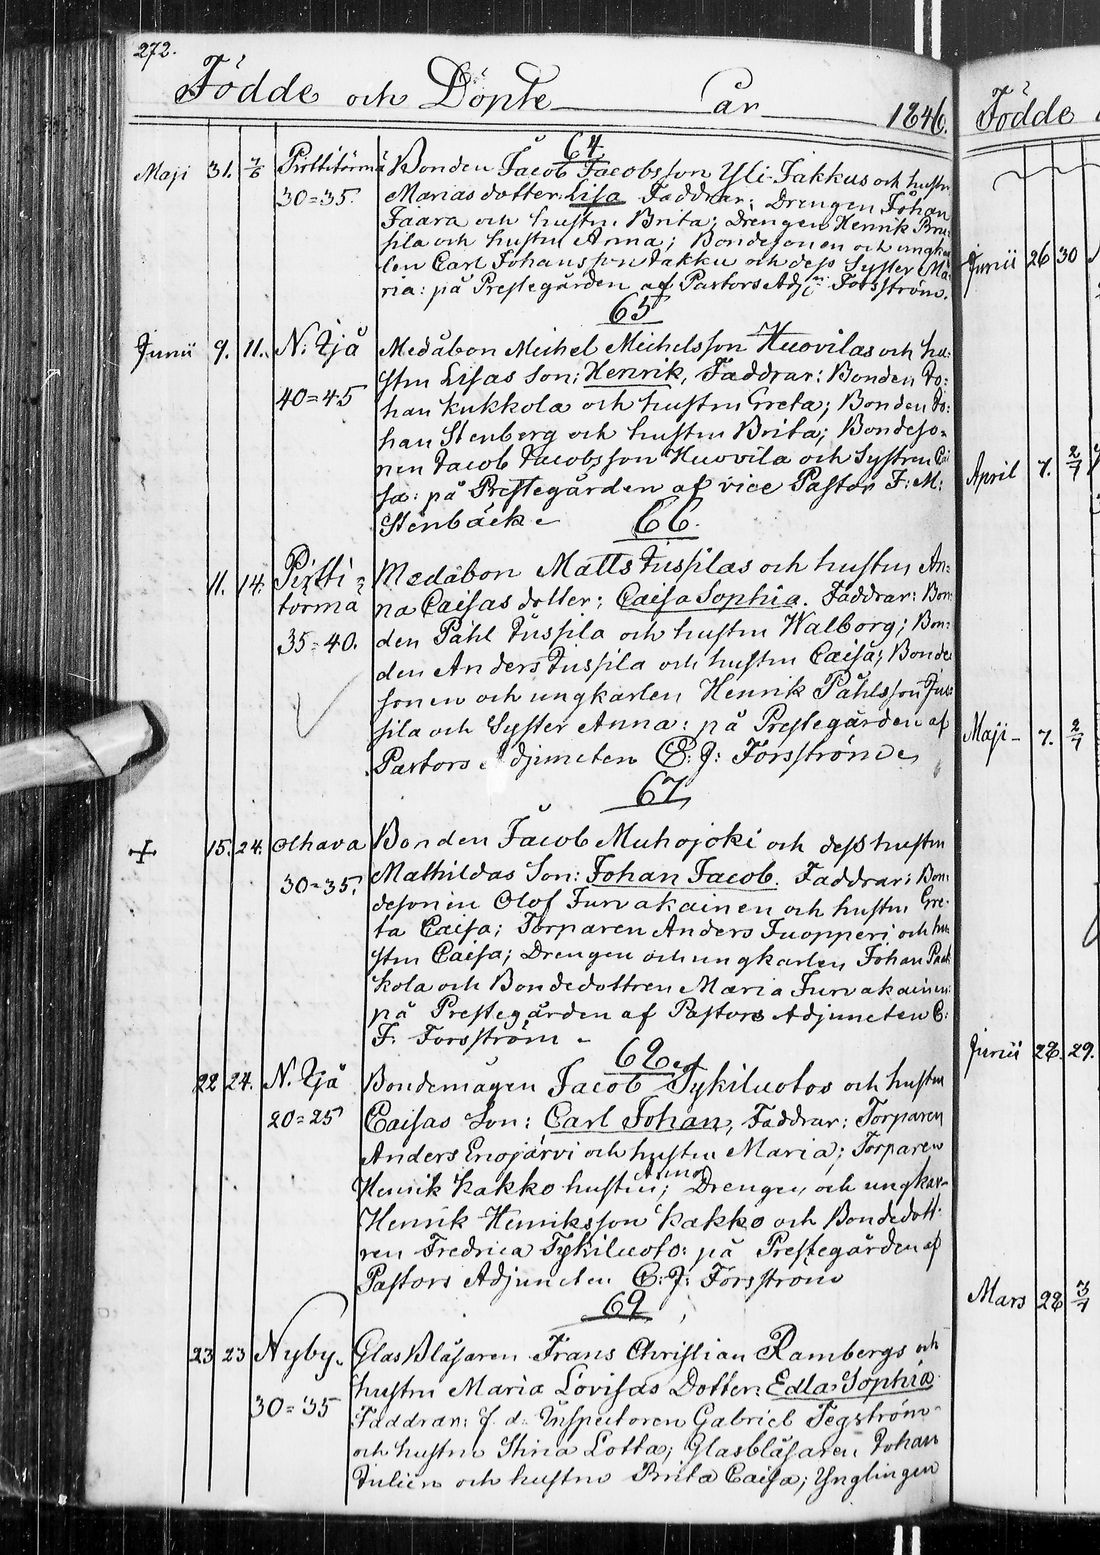 272.
Födde och Döpte år 1846.
64
Maji 31. 7/6 Pirttitörmä Bonden Jacob Jacobsson Yli-Jakkus och hustru
30=35. Marias dotter: Lisa Faddrar: Drengen Johan
Faara och hustru Brita; Drengen Henrik Bru-
sila och hustru Anna; Bondesonen och ungkar-
len Carl Johansson Jakku och dess Syster Ma-
ria: på Prestegården af Pastors Adj: Forsström.
65
Junii 9. 11. N: Ijå Medåbon Michel Michelsson Huovilas och hu-
stru Lisas Son: Henrik, Faddrar: Bonden Jo:
40=45 han Kukkola och hustru Greta; Bonden Jo:
han Stenberg och hustru Brita; Bondeso-
nen Jacob Jacobsson Huovila och Systren Cai
sa: på Prestegården af vice Pastor F: M:
Stenbäck
66.
11. 14. Pirtti= Medåbon Matts Jussilas och hustru An=
törmä na Caisas dotter: Caisa Sophia. Faddrar: Bon:
35=40. den Påhl Jussila och hustru Walborg; Bon=
den Anders Jussila och hustru Caisa; Bonde
sonen och ungkarlen Henrik Påhlsson Jus
sila och Syster Anna: på Prestegården af
Pastors Adjuncten C: J: Forsström
67
+ 15. 24. Olhava Bonden Jacob Muhojoki och dess hustru
30=35. Mathildas Son: Johan Jacob. Faddrar: Bon:
desonen Olof Turvakainen och hustru Gre-
ta Caisa; Torparen Anders Juopperi och hu
stru Caisa; Drengen och ungkarlen Johan Pak
kola och Bondedottren Maria Turvakainen:
på Prestegården af Pastors Adjuncten C:
J. Forsström
68
22 24. N. Ijå Bondemågen Jacob Tykiluotos och hustru
20=25 Caisas Son: Carl Johan, Faddrar: Torparen
Anders Enojärvi och hustru Maria; Torparen
Henrik Kakko hustru Anna; Drengen och ungkar-
Henrik Henriksson Kakko och Bondedott-
ren Fredrica Tykiluoto: på Prestegården af
Pastors Adjuncten C: J: Forsström
69
23 23 Nyby. Glas Blåsaren Frans Christian Rambergs och
30=35 hustru Maria Lovisas Dotter: Edla Sophia
Faddrar: f. d. Inspectoren Gabriel Tegström
och hustru Stina Lotta; Glasblåsaren Johan
Julien och hustru Brita Caisa; Ynglingen
Födde
Junii 26 30
April 7. 2/7
Maji 7. 2/7
Junii 28. 29.
Mars 28 3/7